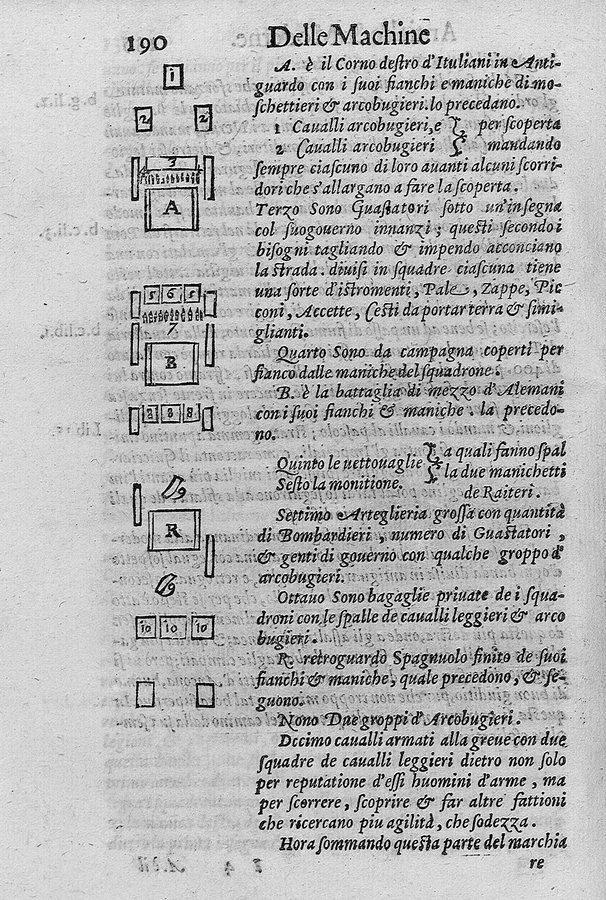 190
Delle Machine
A. è il Corno destro d'Italiani in Anti-
guardo con i suoi fianchi e maniche di mo-
schettieri & arcobugieri. lo precedano.
1 Cavalli arcobugieri, e } per scoperta
2 Cavalli arcobugieri } mandando
sempre ciascuno di loro avanti alcuni scorri-
dori che s'allargano a fare la scoperta.
Terzo Sono Guastatori sotto un'insegna
col suo governo innanzi; questi secondo i
bisogni tagliando & impendo acconciano
la strada. divisi in squadre ciascuna tiene
una sorte d'istromenti, Pale, Zappe, Pic
coni, Accette, Cesti da portar terra & simi-
glianti.
Quarto Sono da campagna coperti per
fianco dalle maniche del squadrone.
B. è la battaglia di mezzo d'Alemani
con i suoi fianchi & maniche. la precedo-
no.
Quinto le vettovaglie } a quali fanno spal
Sesto la monitione. } la due manichetti
de Raiteri.
Settimo Arteglieria grossa con quantità
di Bombardieri, numero di Guastatori,
& genti di governo con qualche groppo d'
arcobugieri.
Ottavo Sono bagaglie private de i squa-
droni con le spalle de cavalli leggieri & arco
bugieri.
R. retroguardo Spagnuolo finito de suoi
fianchi & maniche, quale precedono, & se-
guono.
Nono Due groppi d'Arcobugieri.
Dccimo cavalli armati alla greve con due
squadre de cavalli leggieri dietro non solo
per reputatione d'essi huomini d'arme, ma
per scorrere, scoprire & far altre fattioni
che ricercano piu agilità, che sodezza.
Hora sommando questa parte del marchia
re
1
2 2
3
A
5 6 5
7
B
8 8 8
R
10 10 10